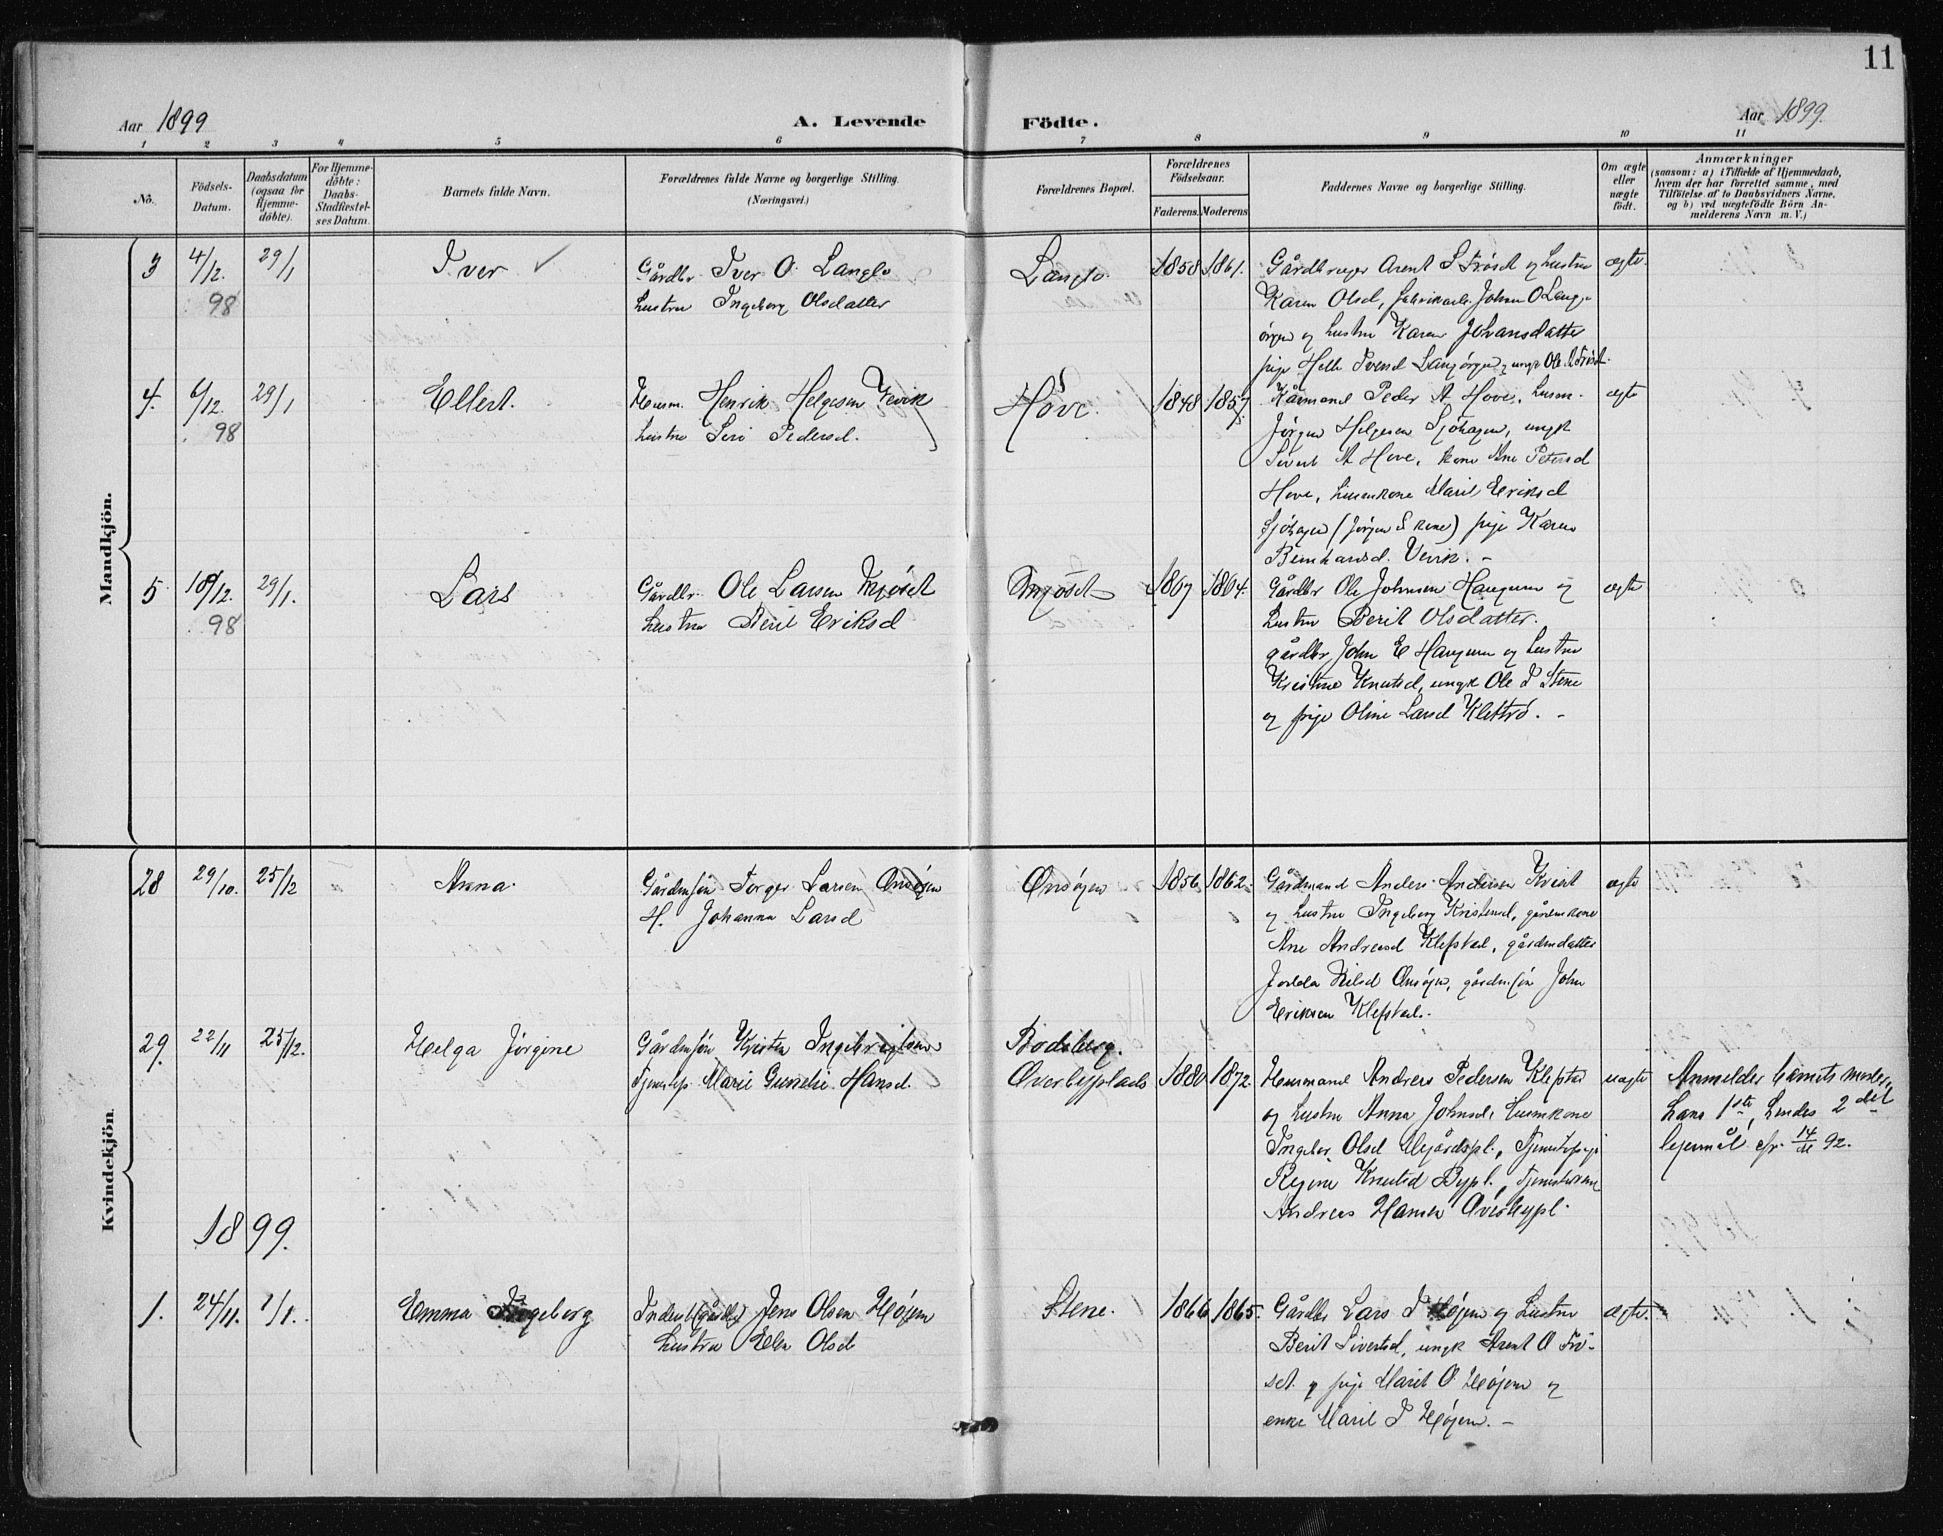 11
Aar 1899
A. Levende Födte.
Aar 1899.
1 2 3 4 5 6 7 8 9 10 11
No.
Födsels-Datum.
Daabsdatum (ogsaa for Hjemme-döbte).
For Hjemme-döbte: Daabs-Stadfæstel-ses Datum.
Barnets fulde Navn.
Forældrenes fulde Navne og borgerlige Stilling.
(Næringsvei.)
Forældrenes Bopæl.
Forældrenes Födselsaar.
Faderens. Moderens
Faddernes Navne og borgerlige Stilling.
Om ægte eller uægte födt.
Anmærkninger
(saasom: a) i Tilfælde af Hjemmedaab,
hvem der har forrettet samme, med
Tilföielse af to Daabsvidners Navne,
og b) ved uægtefödte Börn An-
melderens Navn m. V.)
Mandkjön.
3 4/12. 98 29/1 Iver ✓
Gårdbr. Iver O. Langlo
hustru Ingeborg Olsdatter
Langlo. 1858 1861.
Gårdbruger Arent S Fröset og hustru
Karen Olsd, fabrikarb. Johan O Lang-
örgen og hustru Karen Johansdatter
pige
ægte
4. 6/12. 98 29/1 Ellert.
Husm. Henrik Helgesen Vevik
hustru Seri Pedersd.
Hove. 1848 1857.
Kårmand Peder A Hove, husm.
Jörgen Helgesen Sjöhagen, ungk
Sivert A Hove, kone Ane Petersd
Hove, husmkone Marit Eriksd
Sjöhagen (Jörgen S kone) pige Karen
Bernhardsd. Vevik. –
ægte
5 18/12. 98 29/1. Lars
Gårdbr. Ole Larsen Mjöset
hustru Berit Eriksd
Mjöset 1867 1864.
Gårdbr Ole Johnsen Haugum og
hustru Berit Olsdatter.
gårdbr John E Haugum og hustru
Kristine Knutsd, ungk Ole I Stene
og pige Oline Larsd Klettrö. –
ægte
Kvindekjön.
28 29/10. 25/12 " Anna.
Gårdmsön Torger Larsen Önsöyen
H. Johanna Larsd
Önsöyen 1856 1862.
Gårdmand Anders Andersen Kvist
og hustru Ingeborg Kristensd, gårdmkone
Ane Andreasd Klefstad, gårdmdatter
Nilsd Önsöyen, gårdmsön John
Eriksen Klefstad.
ægte
29. 22/11 25/12. Helga Jörgine
Gårdmsön Kristen Ingebrigtsen
Tjenestep. Marie Gunelie Hansd.
Bodsberg.
Överbyplads 1880 1872.
Husmand Andreas Pedersen Klefstad
og hustru Anna Johnsd, husmkone
Ingebor. Olsd Uvgårdspl., Tjenestepige
Regine Knutsd Bypl., Tjenestekarl
Andreas Hansen Överbypl.
uægte
Anmelder barnets moder,
hans 1ste, hendes 2det
lejermål cfr. 14/11 92.
1899.
1. 24/11. 1/1. Emma Ingeborg
Inderst (gårdbr) Jens Olsen Höyem
hustru Elen Olsd
Stene. 1866 1865.
Gårdbr Lars I Höyem og hustru
Berit Sivertsd, ungk Arent O Frö-
set og pige Marit O. Höyem og
enke Marit I Höyem. –
ægte.